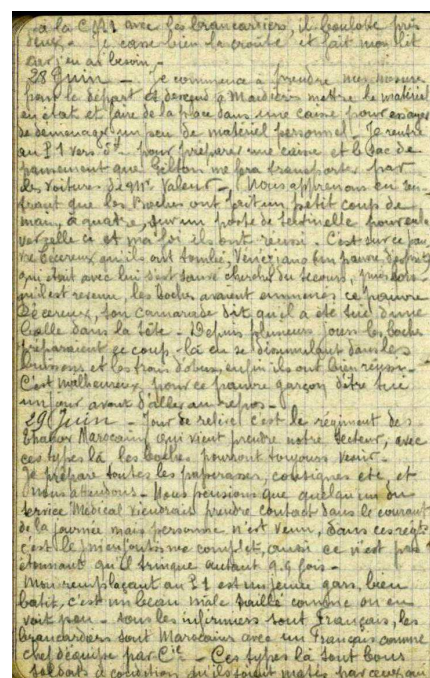 à la CM1 avec les brancardiers, il boulotte près
deux. Je casse bien la croûte et fait mon lit
car j'en ai besoin.
28 Juin - Je commence à prendre mes mesures
pour le départ et descend à Maidières mettre le matériel
en état et faire de la place dans une caisse pour essayer
de déménager un peu de matériel personnel. Je rentre
au P.1 vers 5h pour préparer une caisse et le sac de
pansement que Gilton me fera transporter par
les voitures de Mr Valeur. Nous apprenons en ren-
trant que les Boches ont fait un petit coup de
main, à quatre, sur un poste de sentinelle pour enle-
ver celle ci et ma foi ils ont réussi. C'est sur ce pau-
vre Décereux qu'ils ont tombé.
qui était avec lui s'est sauvé chercher du secours, puis lors-
qu'il est revenu, les boches avaient emmenés ce pauvre
Décereux, son camarade dit qu'il a été tué d'une
balle dans la tête. Depuis plusieurs jours les boches
préparaient ce coup-là en se dissimulant dans les
buissons et les trous d'obus, enfin ils ont bien réussi.
C'est malheureux pour ce pauvre garçon d'être tué
un jour avant d'aller au repos.
29 Juin - Jour de relève! c'est le régiment des
Marocains qui vient prendre notre secteur, avec
ces types là les boches pourront toujours venir.
Je prépare toutes les paperasses, consignes etc et
nous attendons. Nous pensions que quelqu'un du
service Médical viendrait prendre contact dans le courant
de la journée mais personne n'est venu, dans ces régts
c'est le j'menfoutisme complet, aussi ce n'est pas
étonnant qu'il trinque autant q.q fois.
Mon remplaçant au P1 est un jeune gars, bien
batit, c'est un beau mâle taillé comme on en
voit peu. Tous les infirmiers sont français, les
brancardiers sont Marocains avec un Français comme
chef d'équipe par Cie. Ces types là sont bons
soldats à condition qu'ils soient matés par ceux qui